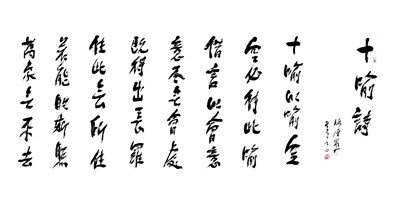 十喻詩
十喻以喻空
空必待此喻
借言以會意
意盡無會處
既得出長羅
住此無所住
若能映斯照
萬象無來去